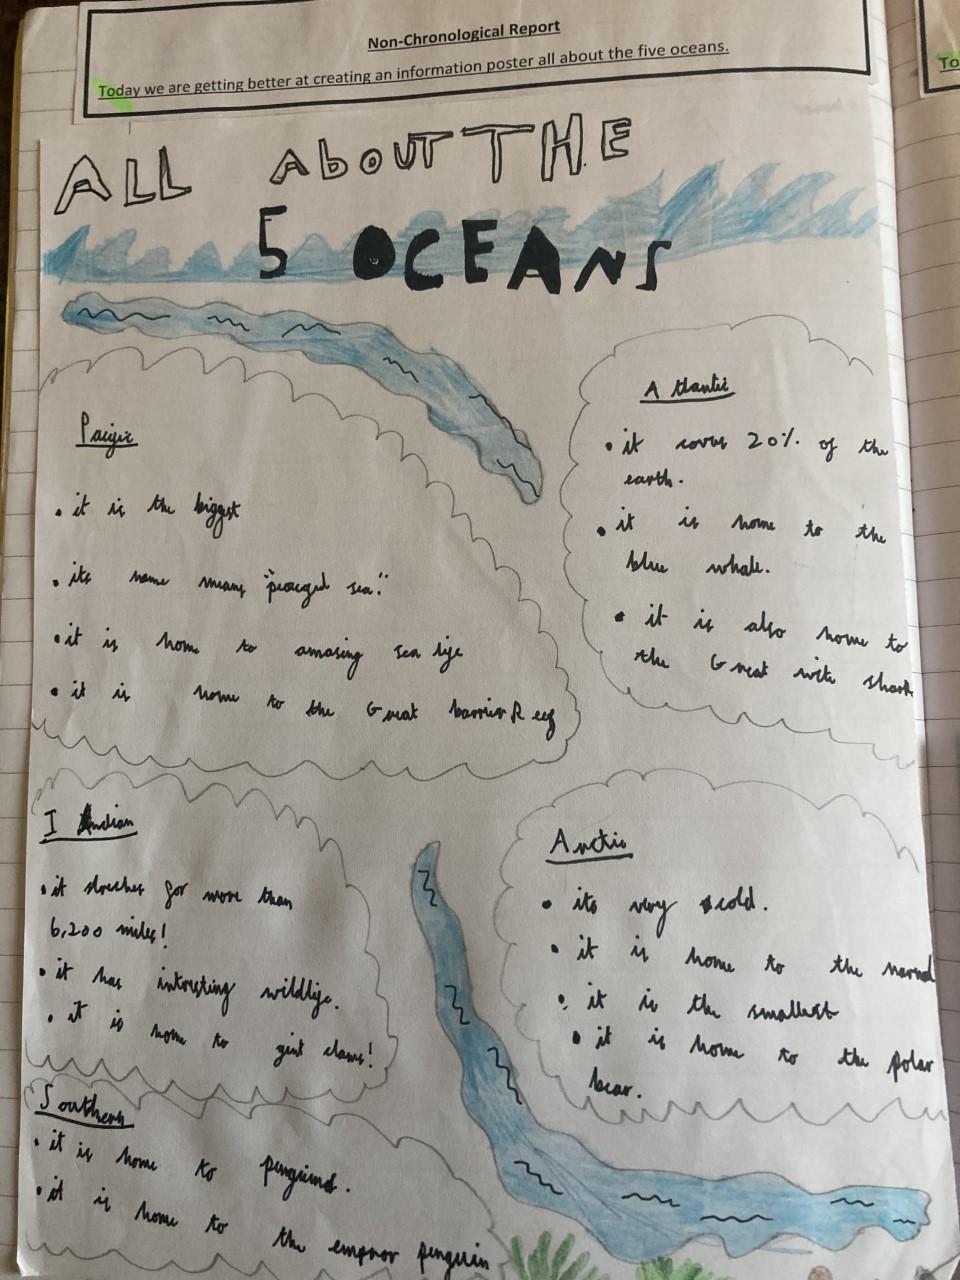 Non-Chronological Report
Today we are getting better at creating an information poster all about the five oceans.
To
ALL AboUT THE
5 OCEANS
Pacific
• it is the biggest
• its name means "peaceged sea."
• it is home to amasing sea life
• it is home to the Great barrier Reef
Atlantic
• it covers 20% of the
earth.
• it is home to the
blue whale.
• it is also home to
the Great wite shark
Indian
• it streches for more than
6,200 miles!
• it has intristing wildlife.
• it is home to gint clams!
Arctic
• its very cold.
• it is home to the narwal
• it is the smallest
• it is home to the polar
bear.
Southern
• it is home to
• it is home to the empror penguin